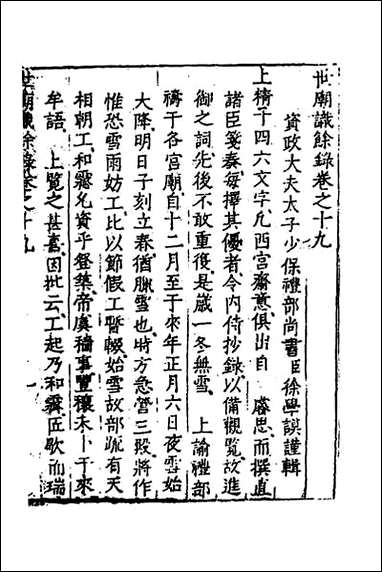 世廟識餘錄卷之十九
資政大夫太子少保禮部尚書臣徐學謨謹輯
上精于四六文字凡西宮齋意俱出自　睿思而撰直
諸臣箋奏每擇其優者令內侍抄錄以備觀覽故進
御之詞先後不敢重復是歲一冬無雪　上諭禮部
禱于各宮廟自十二月至于來年正月六日夜雪始
大降明日子刻立春猶臘雪也時方急營三殿將作
惟恐雪雨妨工比以節假工暫輟始雪故部疏有天
相朝工和霙允資乎登築帝虞穡事豐穰未卜于來
牟語　上覽之甚喜因批云工起乃和霽匠歇而瑞
世廟識餘錄卷之十九　一